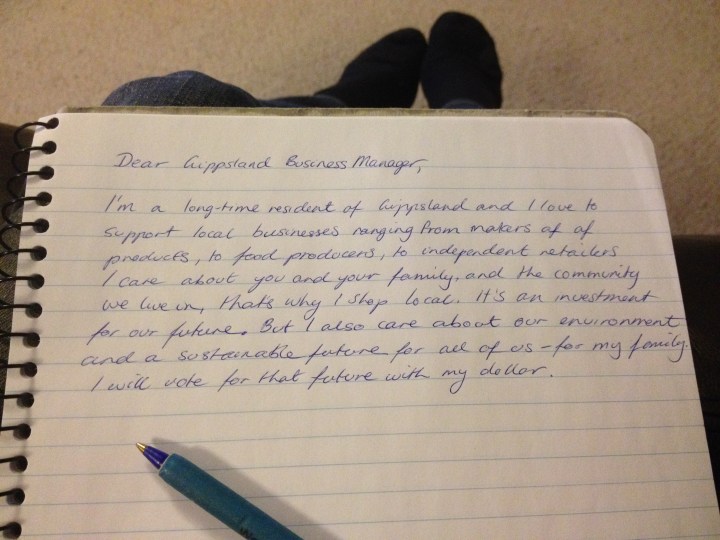 Dear Gippsland Business Manager,
I'm a long-time resident of Gippsland and I love to
support local businesses ranging from makers of of
products, to food producers, to independent retailers
I care about you and your family, and the community
we live in, thats why I shop local. It's an investment
for our future. But I also care about our environment
and a sustainable future for all of us - for my family.
I will vote for that future with my dollar.